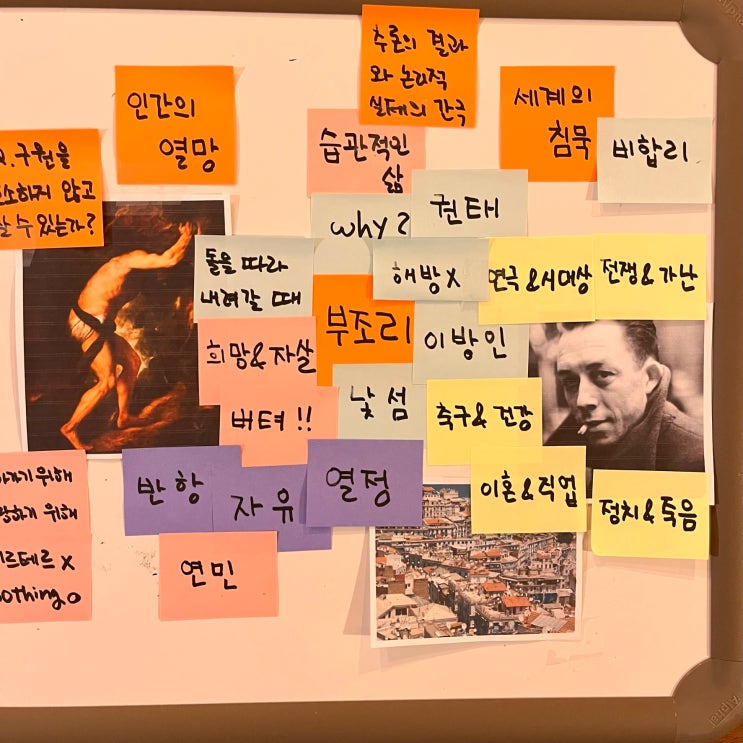 추론의 결과
와 논리적
실제의 간극
인간의
열망
세계의
침묵
비합리
습관적인
삶
구원을
않고
살 수 있는가?
why?
권태
돌을 따라
내려갈 때
해방x
연극&시대상
전쟁&가난
부조리
이방인
희망&자살
낯섬
축구&건강
버텨!!
반항
자유
열정
이혼&직업
정치&죽음
위해
위해
르테르x
nothing o
연민